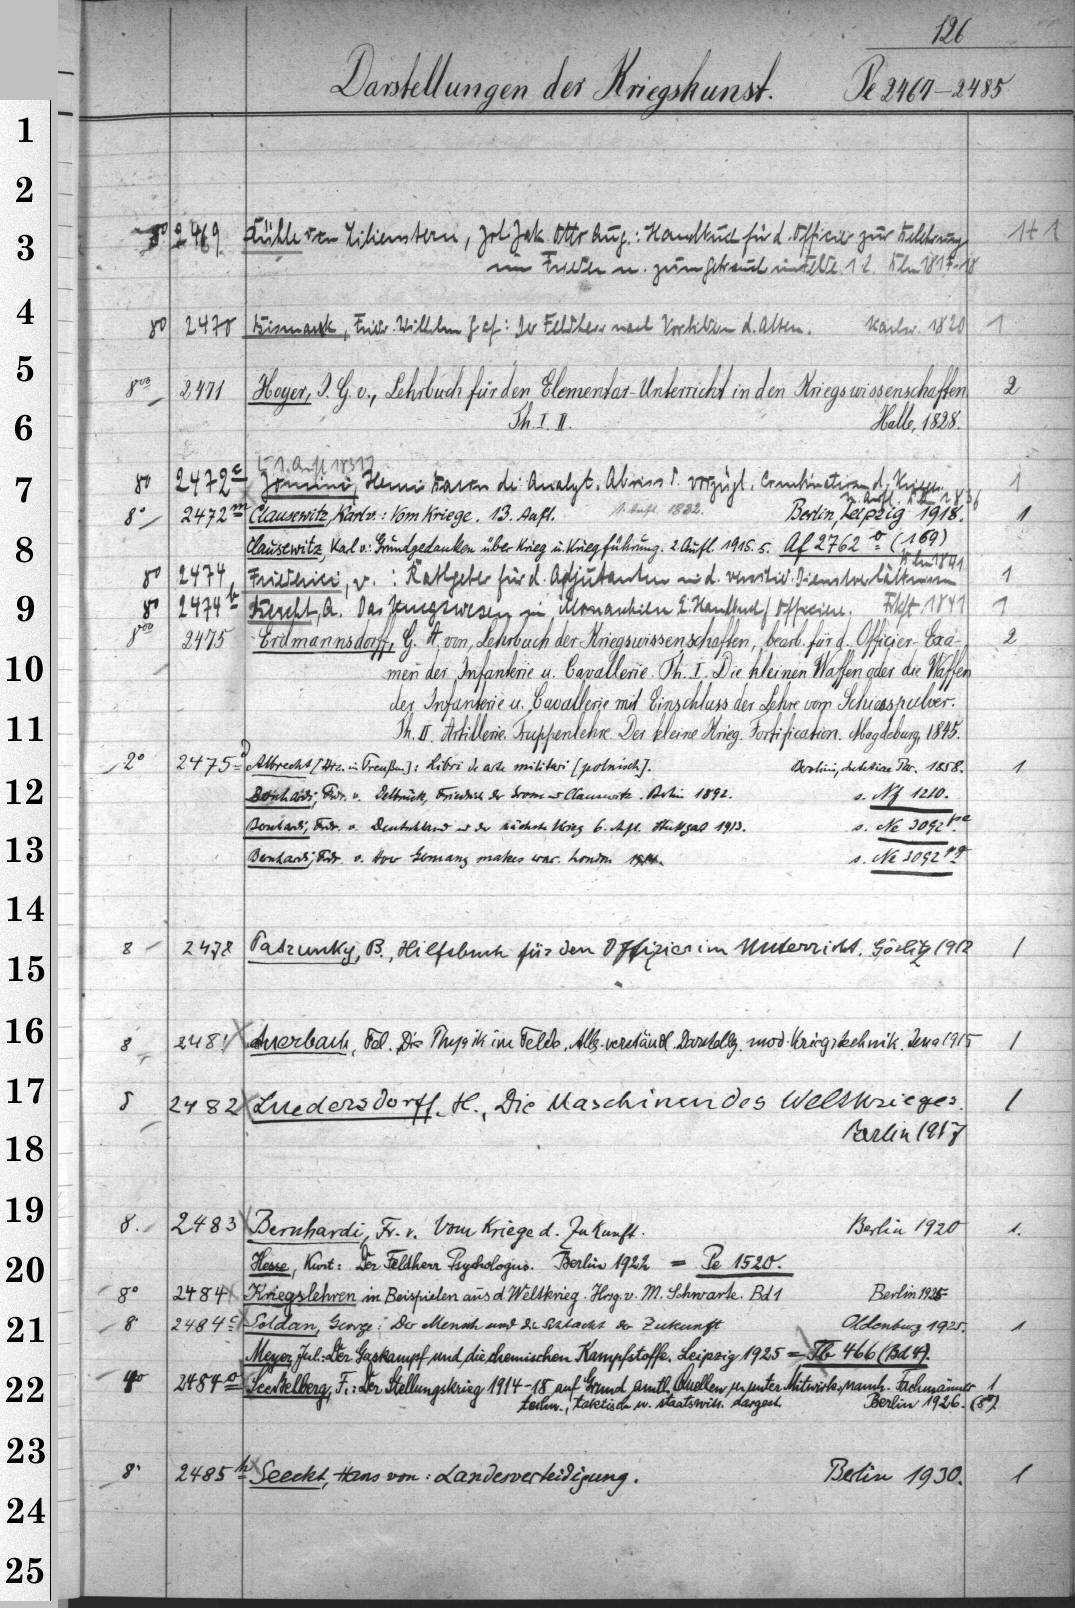 126
Darstellungen der Kriegskunst. Pe 2467-2485
1
2
3
8° 2469 Rühle von Lilienstern, Jak Otto Aug.: Handbuch für d. Officier zur Belehrung 1+1
im Frieden u. zum Gebrauch im Felde. 1.2. Bln 1817-18
4
8° 2470 Bismark, Friedr. Wilhelm Graf: Der Feldherr nach Vorbildern d. Alten. Karlsr. 1820 1
5
8vo 2471 Hoyer, J. G. v., Lehrbuch für den Elementar-Unterricht in den Kriegswissenschaften 2
6
Th. I. II. Halle, 1828.
1. Aufl 1831
7
8° 2472c Jomini, Henri Baron de: Analyt. Abriss d. vorzügl. Combinationen d. Krieges. 1
2. Aufl. 1836
8° 2472m Clausewitz, Karl v.: Vom Kriege. 13. Aufl. 1. Aufl. 1832. Berlin, Leipzig 1918. 1
8
Clausewitz, Karl v.: Grundgedanken über Krieg u. Kriegführung. 2. Aufl. 1915. s. Af 2762 o (169)
Bln 1841
8° 2474 Friederici, v. : Rathgeber für d. Adjutanten in d. verschied. Dienstverhältnissen 1
9
8° 2474b A. Das Kriegswesen in Monarchien E. Handbuch f Officiere. Frkft 1841 1
8vo 2475 Erdmannsdorff, G. A. von, Lehrbuch der Kriegswissenschaften, bearb. für d. Officier-Exa- 2
10
men der Infanterie u. Cavallerie. Th. I. Die kleinen Waffen oder die Waffen
der Infanterie u. Cavallerie mit Einschluss der Lehre vom Schiesspulver.
11
Th. II. Artillerie. Truppenlehre. Der kleine Krieg. Fortification. Magdeburg, 1845.
2° 2475d Albrecht [Hrz. in Preußen]: Libri de arte militari [polnisch]. 1858. 1
12
Bernhardi, Fdr. v. Delbrück, Friedrich der Grosse u. Clausewitz. Berlin 1892. s. Nf 1210.
Bernhardi, Fdr. v. Deutschland u. der nächste Krieg 6. Aufl. Stuttgart 1913. s. Ne 3092 pe
13
Bernhardi, Fdr. v. How Germany makes war. London 1914. s. Ne 3092 pg
14
8 2478 Patzunky, B., Hilfsbuch für den Offizier im Unterricht. Görlitz 1912 1
15
16
8 2481 Auerbach, Fel. Die Physik im Felde, Allg. verständl. Darstellg. mod. Kriegstechnik. Jena 1915 1
17
8 2482 Luedersdorff, H., Die Maschinen des Weltkrieges. 1
Berlin 1917
18
19
8. 2483 Bernhardi, Fr. v. Vom Kriege d. Zukunft. Berlin 1920 1.
20
Hesse, Kurt: Der Feldherr Psychologus. Berlin 1922 = Pe 1520.
8° 2484 Kriegslehren in Beispielen aus d Weltkrieg. Hrsg. v. M. Schwarte. Bd 1 Berlin 1925
21
8 2484c Soldan, George: Der Mensch und die Schlacht der Zukunft Oldenburg 1925. 1
Meyer, Jul.: Der Gaskampf und die chemischen Kampfstoffe. Leipzig 1925 = Tb 466 (Bd 4).
22
4° 2484o Seeßelberg, F.: Der Stellungskrieg 1914-18 auf Grund amtl. Quellen u. unter Mitwirk. namh. Fachmänner 1
techn., taktisch u. staatswiss. dargest. Berlin 1926. (8°)
23
8° 2485h Seeckt, Hans von: Landesverteidigung. Berlin 1930. 1
24
25